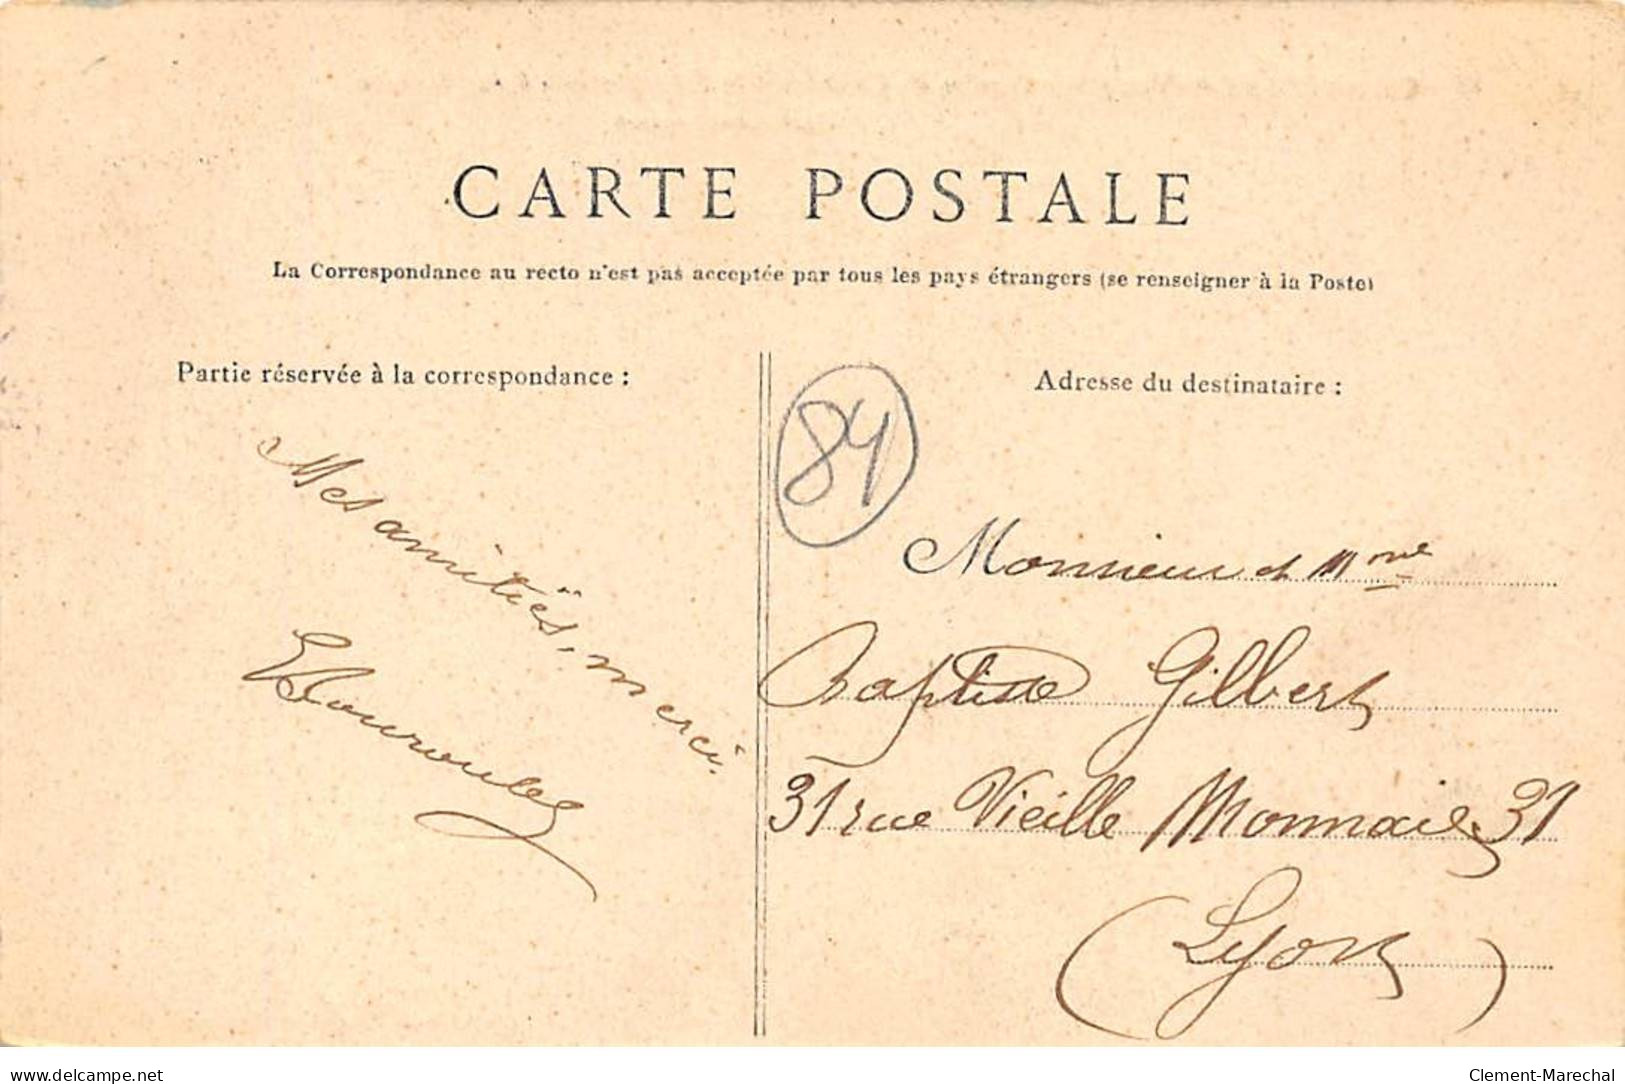 CARTE POSTALE
La Correspondance au recto n'est pas acceptée par tous les pays étrangers (se renseigner à la Poste)
Partie réservée à la correspondance :
Mes amitiés, merci.
Adresse du destinataire :
84
Monsieur et Mme
Baptiste Gilbert
31 rue Vieille Monnaie, 31
(Lyon)
www.delcampe.net
Clement-Marechal